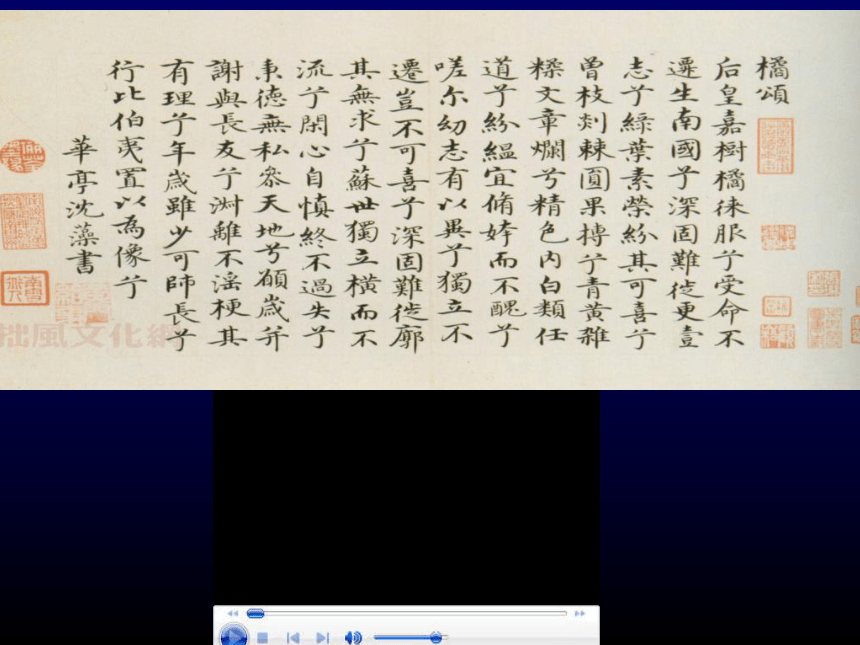 橘頌
后皇嘉樹橘徠服兮受命不
遷生南國兮深固難徙更壹
志兮綠葉素榮紛其可喜兮
曾枝剡棘圓果摶兮青黃雜
糅文章爛兮精色內白類任
道兮紛緼宜脩姱而不醜兮
嗟尔幼志有以異兮獨立不
遷豈不可喜兮深固難徙廓
其無求兮蘇世獨立橫而不
流兮閑心自慎終不過失兮
秉德無私叅天地兮願歲并
謝與長友兮淑離不淫梗其
有理兮年歲雖少可師長兮
行比伯夷置以為像兮
華亭沈藻書
拙風文化網